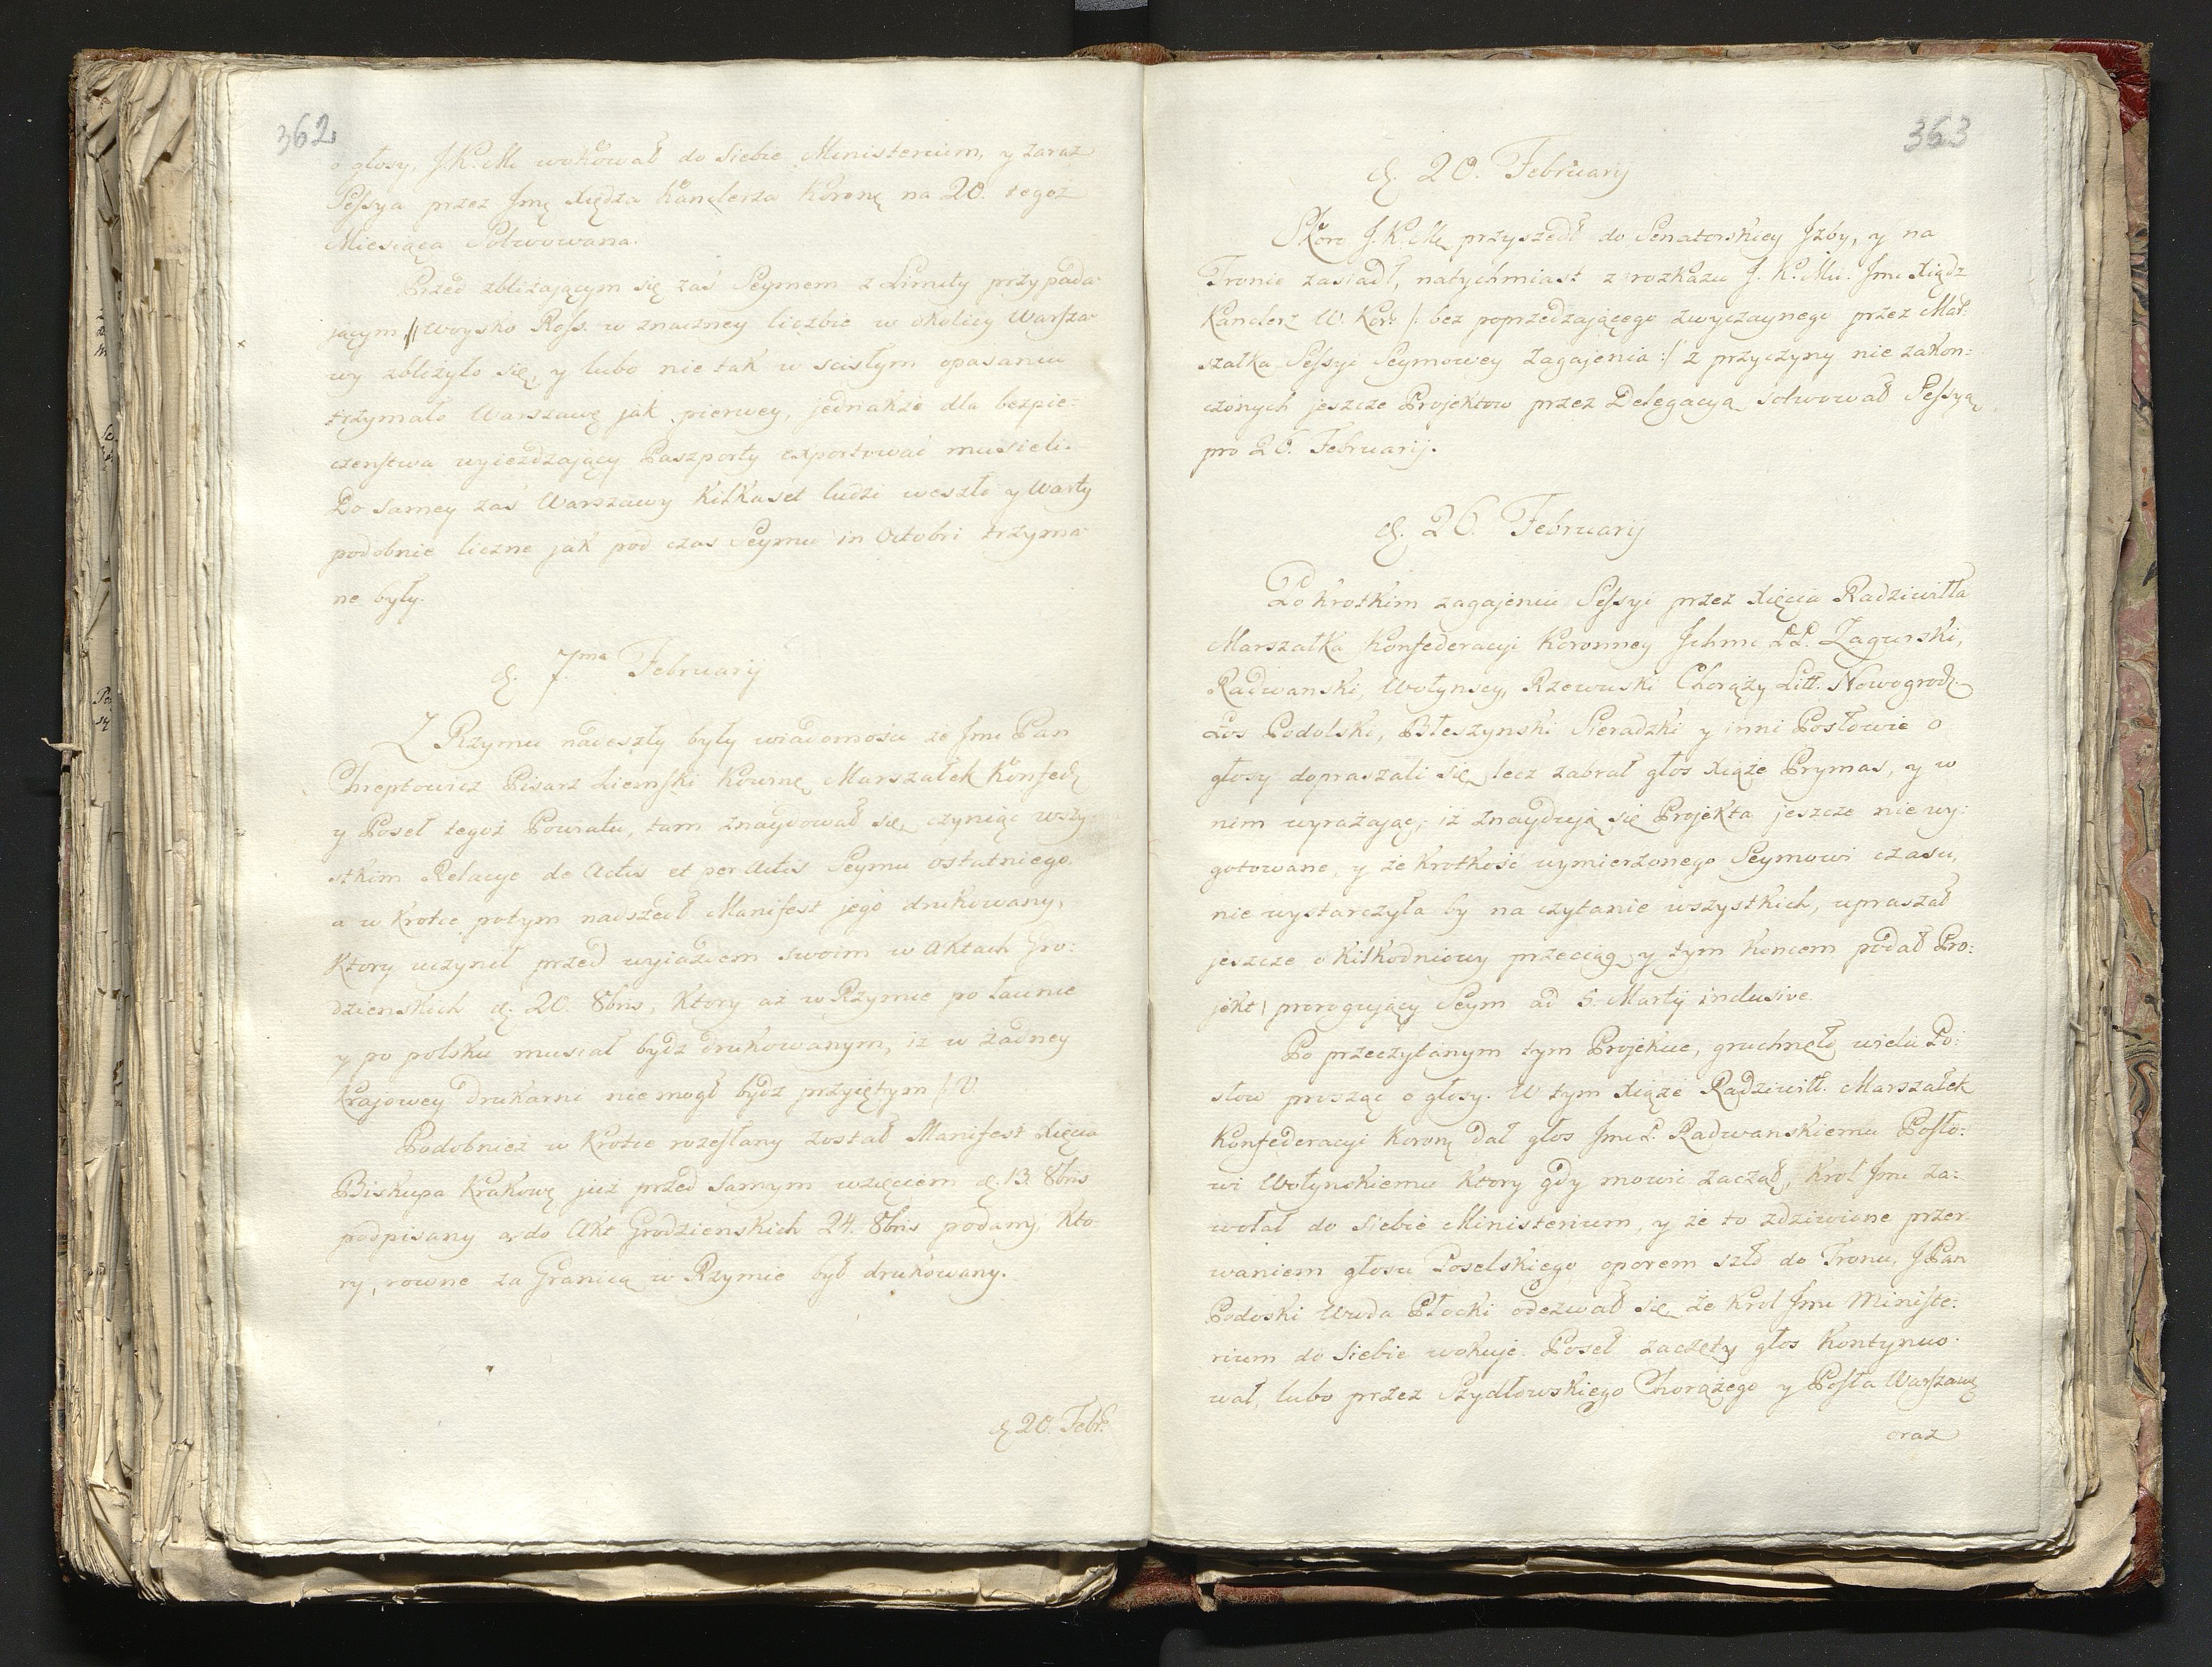 362
o głosy, J.K.M. wokował do siebie Ministerium, y zaraz
Sessya przez Jmę Xiędza Kanclerza Koronę na 20. tegoż
Miesiąca Solwowana.
Przed zbliżającym się zaś Seymem z Limity przypada-
jącym // Woysko Ross. w znaczney liczbie w okolicy Warsza-
wy zbliżyło się, y lubo nie tak w scisłym opasaniu
trzymało Warszawę jak pierwey, jednakże dla bezpie=
czenstwa wyieżdzający Paszporty exportować musieli.
Do samey zaś Warszawy Kilkaset ludzi weszło y Warty
podobnie liczne jak pod czas Seymu in Octobri trzyma-
ne były.
d. 7ma Februarij
Z Rzymu nadeszły były wiadomości że Jmć Pan
Chreptowicz Pisarz Ziemski Kownę Marszałek Konfed.
y Poseł tegoż Powiatu, tam znaydował się, czyniąc wszy-
stkim Relacye de Actis et per Actis Seymu ostatniego.
a w krotce potym nadszedł Manifest jego drukowany,
Ktory uczynił przed wyiazdem swoim w Aktach Gro=
dzienskich d. 20. 8bris, Ktory aż w Rzymie po łacinie
y po polsku musiał bydz drukowanym, iż w żadney
Krajowey Drukarni nie mogł bydz przyiętym /: V.
Podobnież w Krotce rozesłany został Manifest Xięcia
Biskupa Krakowę już przed samym wzięciem d. 13. 8bris
podpisany a do Akt Grodzienskich 24. 8bris podany, Kto-
ry, rowne za Granicą w Rzymie był drukowany.
d 20. Febr.
363
d. 20. Februarij
Skoro J.K.Mę przyszedł do Senatorskiey Jzby, y na
Tronie zasiadł, natychmiast z rozkazu J.K.Mci. Jmć Xiądz
Kanclerz W. Kor. /: bez poprzedzającego zwyczaynego przez Mar-
szałka Sessyi Seymowey zagajenia :/ z przyczyny nie zakon=
czonych jeszcze Projektow przez Delegacyą solwował Sessyą
pro 26. Februarij.
d. 26. Februarij
Po krotkim zagajeniu Sessyi przez Xięcia Radziwiłła
Marszałka Konfederacyi Koronney Jchmć PP. Zagurski,
Radwanski, Wołynscy, Rzewuski Chorąży Litt. Nowogrodz.
Łos Podolski, Błeszynski Sieradzki y inni Posłowie o
głosy dopraszali się, lecz zabrał głos Xiąże Prymas, y w
nim wyrażając, iż znaydują się Projekta jeszcze nie wy=
gotowane, y że krotkość wymierzonego Seymowi czasu,
nie wystarczyła by na czytanie wszystkich, upraszał
jeszcze o kilkodniowy przeciąg y tym koncem podał Pro=
jekt prorogujący Seym ad 5. Martij inclusive.
Po przeczytanym tym Projekcie, gruchnęło wielu Po=
słow prosząc o głosy. W tym Xiąże Radziwiłł. Marszałek
Konfederacyi Koronę dał głos Jmć P. Radwanskiemu Posło=
wi Wołynskiemu Ktory gdy mowić zaczął, Krol Jmć za=
wołał do siebie Ministerium, y że to zdziwione przer-
waniem głosu Poselskiego oporem szło do Tronu, JPan
Podoski Wwda Płocki odezwał się, że Krol Jmć Ministe=
rium do siebie wokuje. Poseł zaczęty głos Kontynuo-
wał, lubo przez Szydłowskiego Chorążego y Posła Warszawę
oraz